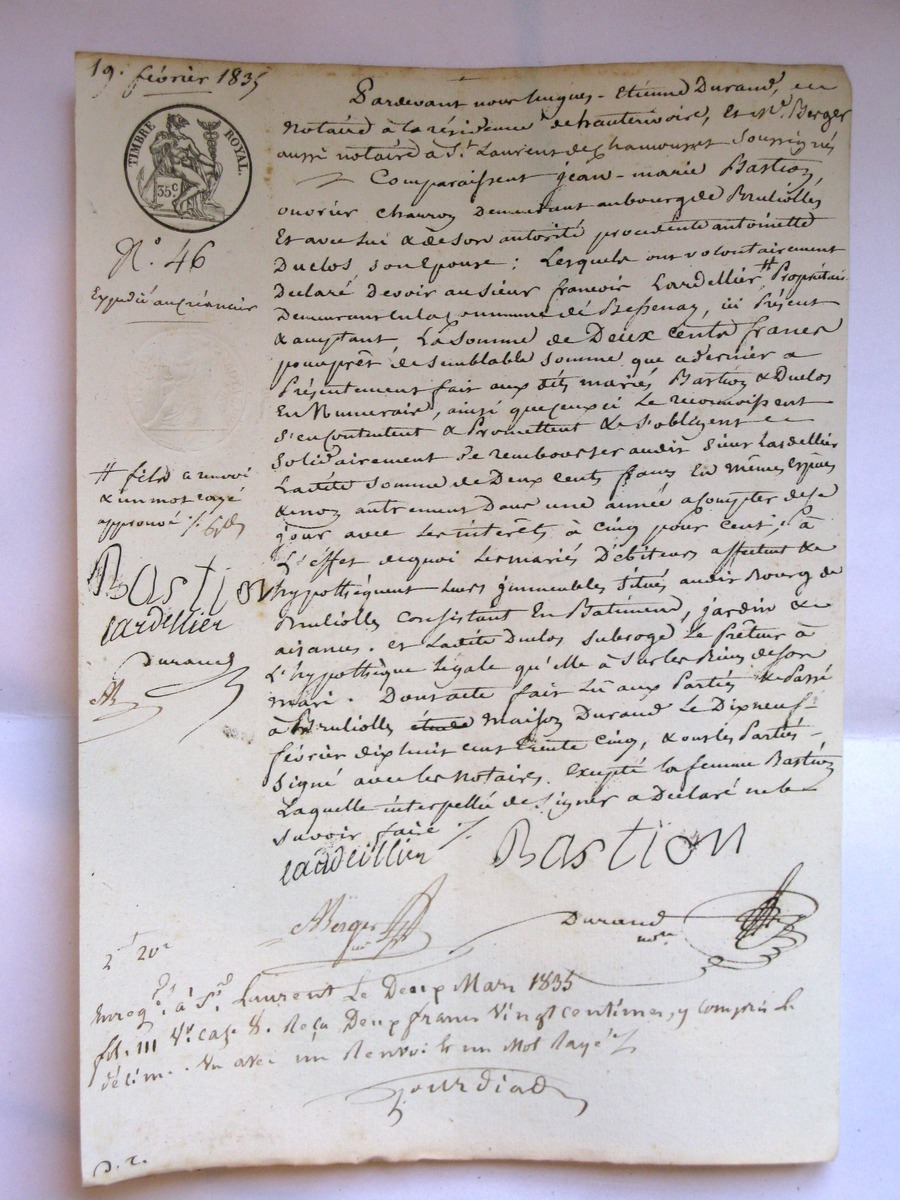 19. février 1835
TIMBRE ROYAL.
35c
N°. 46
Expédié au créancier
Pardevant nous hugues-Etienne Durand,
Notaire à la résidence de hauterivoire, Et Me. Berger
aussi notaire à St. Laurent de chamousset Soussignés
Comparaissent jean-marie Bastion,
ouvrier charron demeurant au bourg de Bruliolles
Et avec lui & de son autorité procédente antoinette
Duclos son Epouse; Lesquels ont volontairement
Declaré devoir au sieur francois Lardellier # Propriétaire
Demeurant en la Commune de Bessenay, ici Présent
& acceptant, La Somme de Deux Cents francs
pour prêt de semblable somme que ce dernier a
Présentement fait aux dits mariés Bastion & Duclos
En Numeraire, ainsi que ceux ci Le reconnoissent
S'en contentent & Promettent & S'obligent
Solidairement De rembourser audit Sieur Lardellier
Ladite Somme de Deux Cents francs En mêmes Espèces
& non autrement Dans une année a compter de ce
jour avec Les interêts à Cinq pour cent; à
L'effet de quoi Les mariés Débiteurs affectent &
hypothéquent Leurs immeubles situés audit Bourg de
Bruliolles Consistant En Batiment, jardin &
aisances. et Ladite Duclos Subroge Le Prêteur à
L'hypothèque légale qu'elle à Sur les Biens de son
mari. Dont acte fait Lu aux Parties & Passé
à Bruliolles étude maison Durand Le Dix neuf
février dix huit cent trente cinq, & ont les Parties
Signé avec les Notaires. Excepté la femme Bastion
Laquelle interpellée de Signer a Déclaré ne le
savoir faire
# fils a renvoi
& un mot rayé
approuvé
Bastion
Lardellier
Durand
AB
Lardellier
Bastion
ABerger
nre
Durand
nre
2f 20c
Enregé. à St. Laurent Le Deux Mars 1835
fol. 111 Vo. case 8. Reçu Deux francs Vingt Centimes, y compris le
décime. Vu avec un Renvoi & un Mot Rayé
D. r.